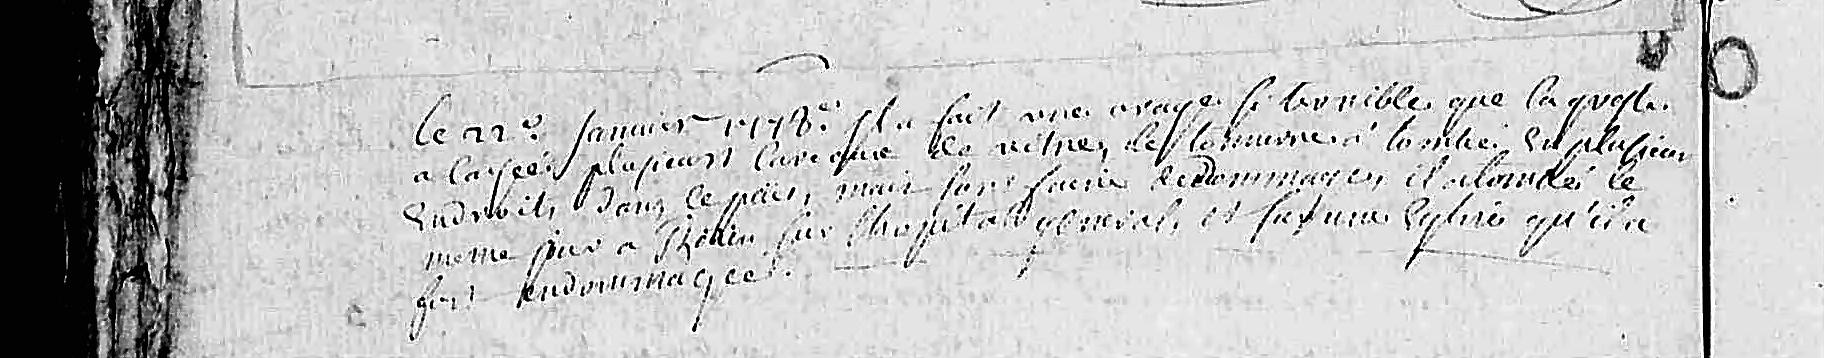 le 22e. Janvier 1778. Il a fait une orage si terrible que la gresle
a cassée plusieurs careaux de vitres, le tonnerre a tombée en plusieurs
Endroits dans ce païs, mais sans faire de dommages, il a tombé le
meme jour a Roüen sur l'hopital general, et sur une Eglise qu'il a
fort endommagée.